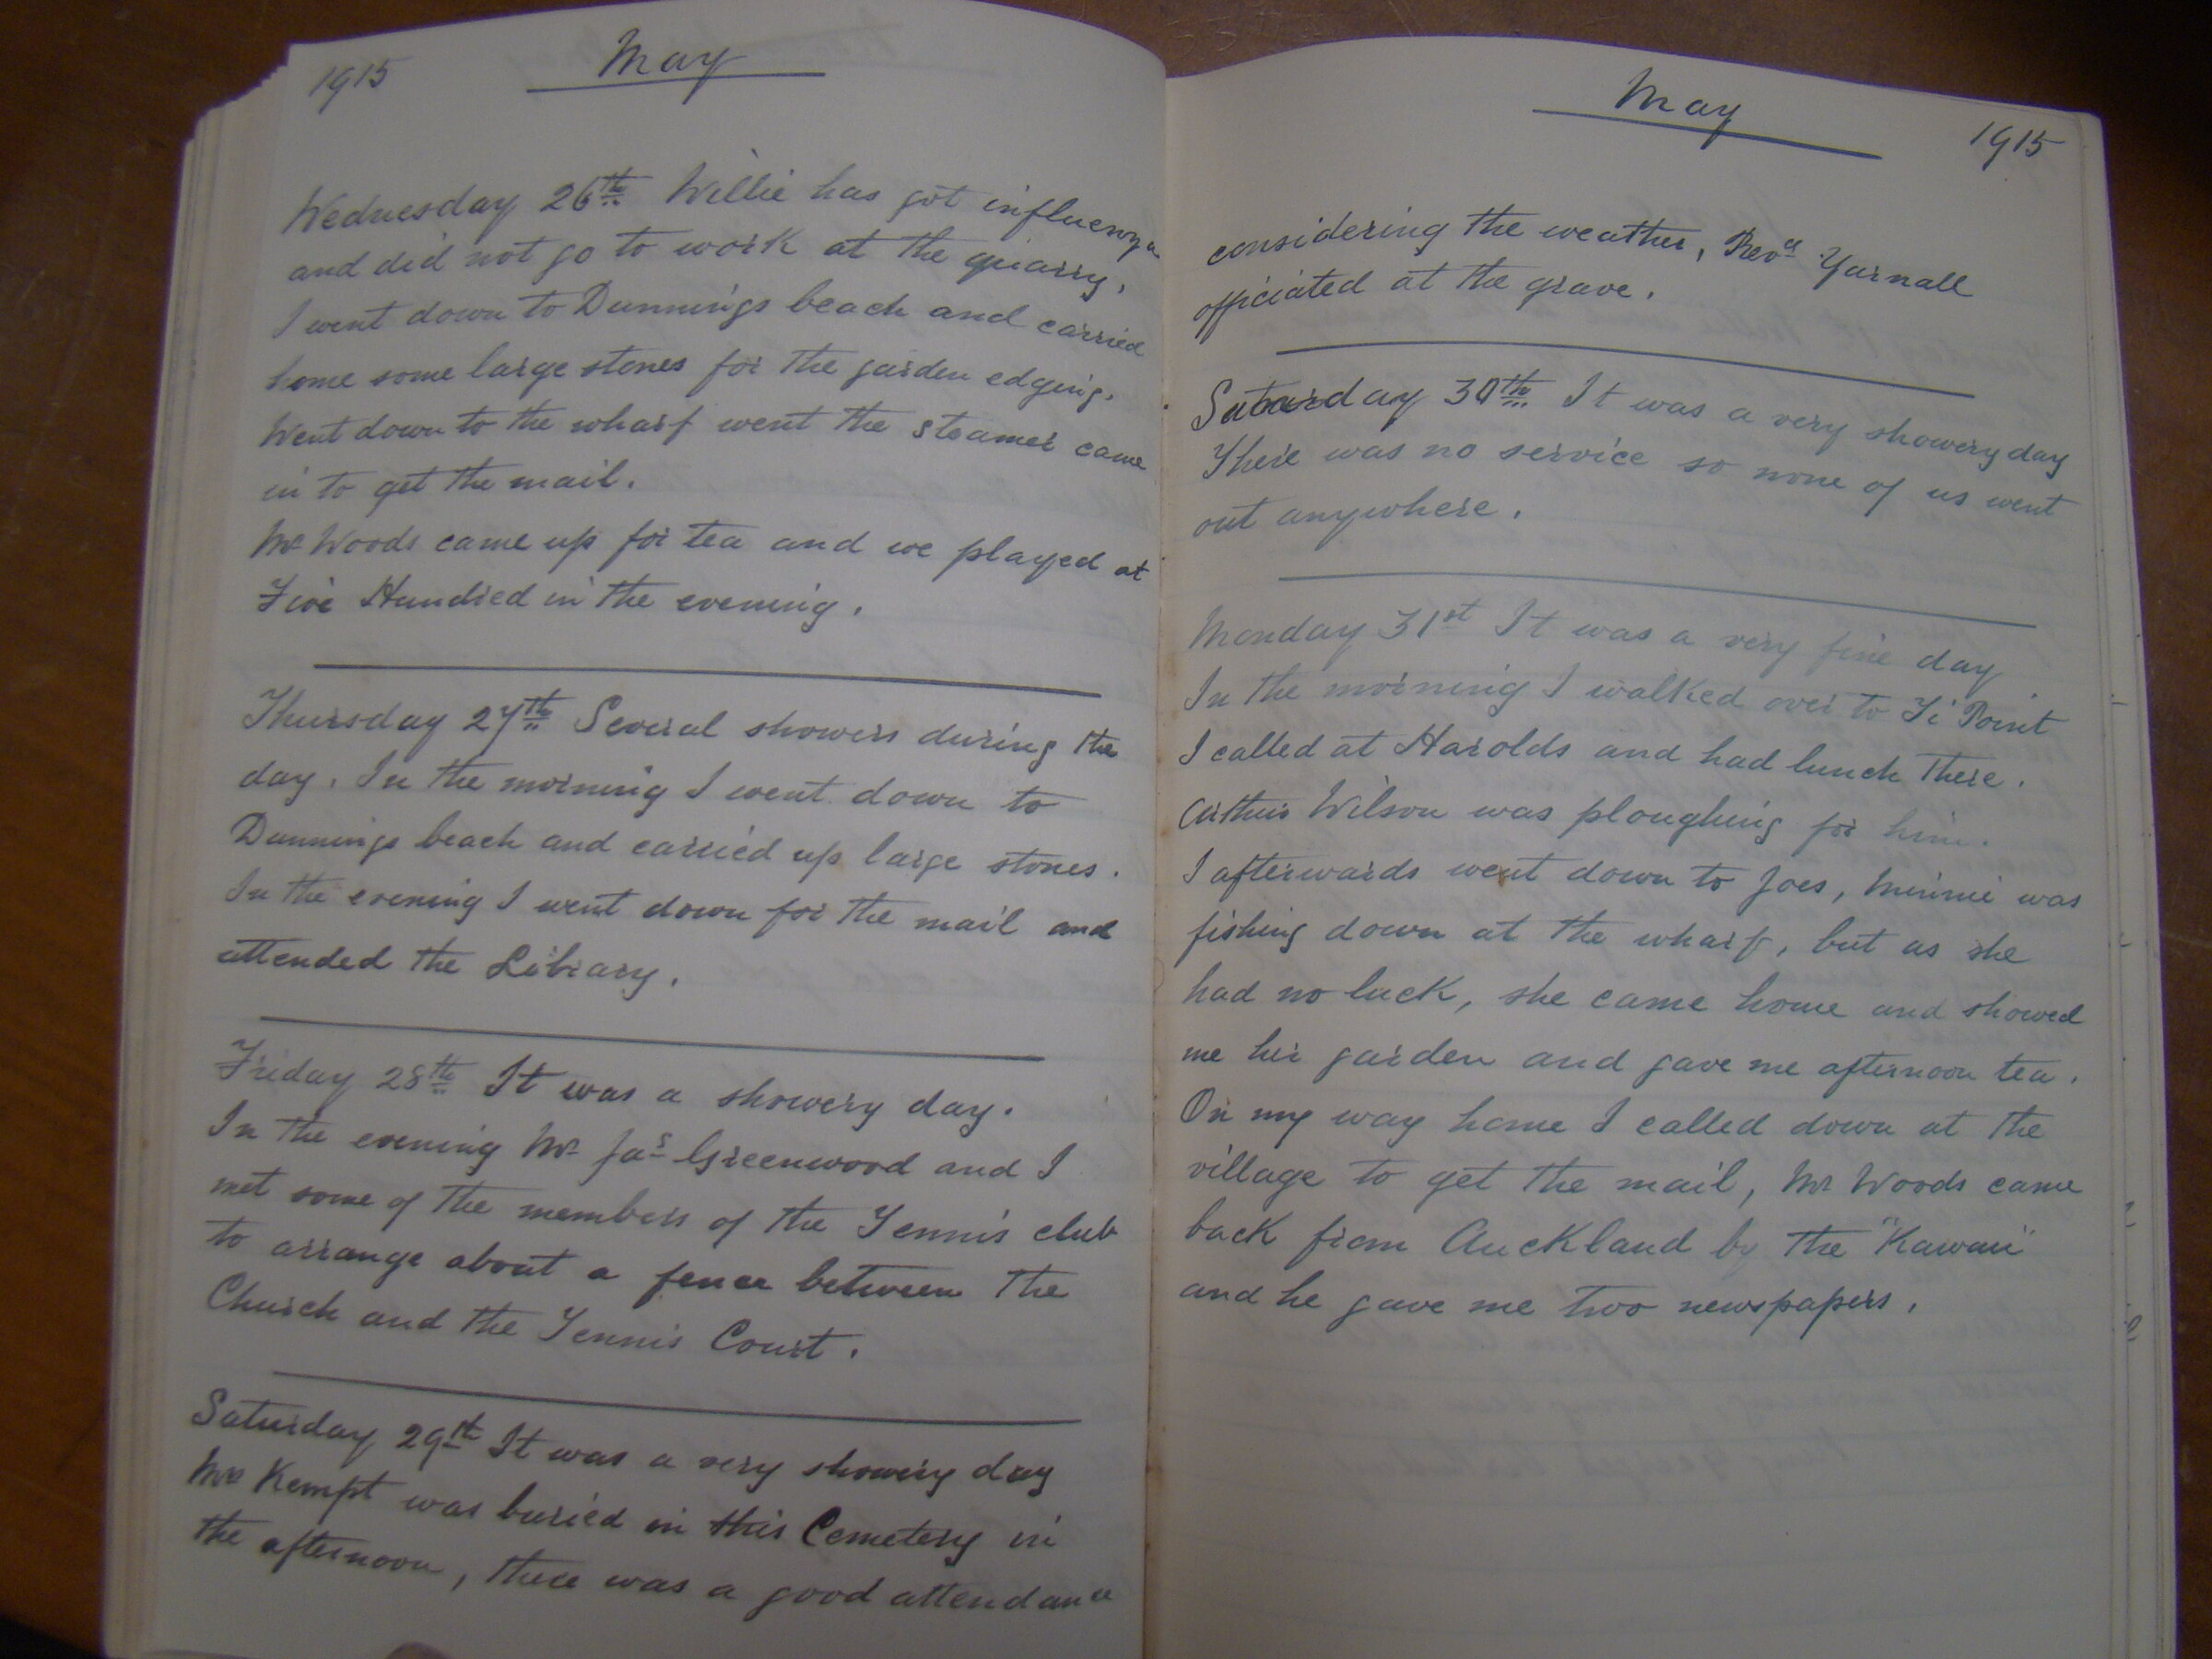 1915 May
Wednesday 26th Willie has got influenza
and did not go to work at the quarry,
I went down to Dunnings beach and carried
home some large stones for the garden edging.
Went down to the wharf went the steamer came
in to get the mail.
Mr Woods came up for tea and we played at
Five Hundred in the evening.
Thursday 27th Several showers during the
day. In the morning I went down to
Dunnings beach and carried up large stones.
In the evening I went down for the mail and
attended the Library.
Friday 28th It was a showery day.
In the evening Mr Jas Greenwood and I
met some of the members of the Tennis club
to arrange about a fence between the
Church and the Tennis Court.
Saturday 29th It was a very showery day
Mrs Kempt was buried in this Cemetery in
the afternoon, there was a good attendance
May 1915
considering the weather, Revd Yarnall
officiated at the grave.
Saturday 30th It was a very showery day
There was no service so none of us went
out anywhere.
Monday 31st It was a very fine day
In the morning I walked over to Ti Point
I called at Harolds and had lunch there.
Arthur Wilson was ploughing for him.
I afterwards went down to Joes, Minnie was
fishing down at the wharf, but as she
had no luck, she came home and showed
me her garden and gave me afternoon tea.
On my way home I called down at the
village to get the mail, Mr Woods came
back from Auckland by the "Kawau"
and he gave me two newspapers.